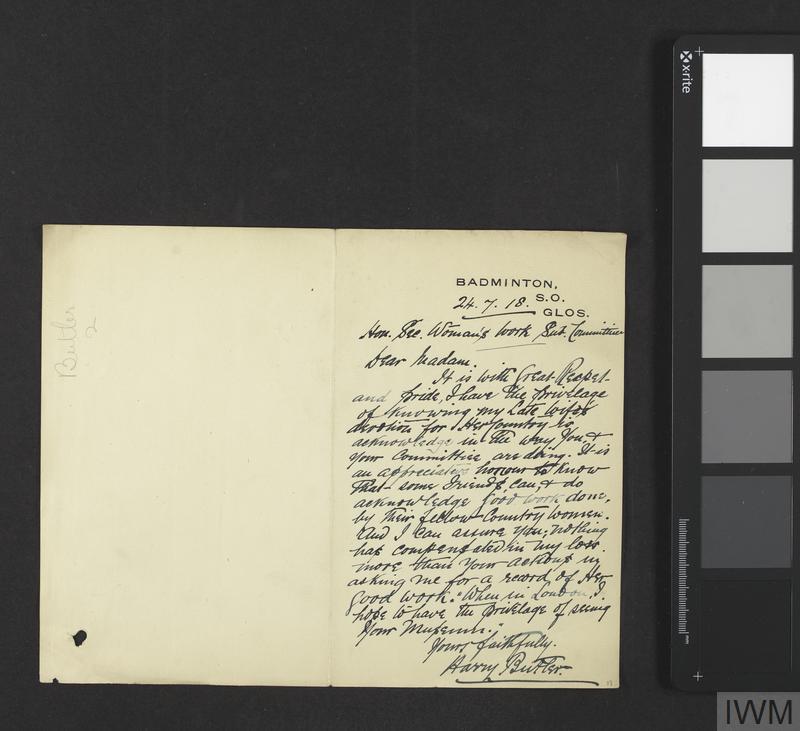 Butler
2
BADMINTON,
S.O.
GLOS.
24.7.18.
Hon. Sec. Woman's Work Sub. Committee
Dear Madam.
It is with Great Respect
and Pride, I have the Privelage
of knowing my Late Wife's
devotion for Her Country is
acknowledge in the way You &
Your Committee are doing. It is
an appreciative honour to know
that some Friends can, & do
acknowledge good work done,
by their fellow Country women.
And I can assure you, nothing
has compensated in my loss.
more than your actions in
asking me for a record of Her
Good Work. "When in London, I.
hope to have the Privelage of seeing
Your Museum."
Yours faithfully.
Harry Butler.
x-rite
IWM